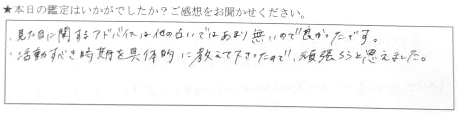 ★本日の鑑定はいかがでしたか？ご感想をお聞かせください。
・見た目に関するアドバイスは他の占いではあまり無いので良かったです。
・活動すべき時期を具体的に教えて下さったので、頑張ろうと思えました。